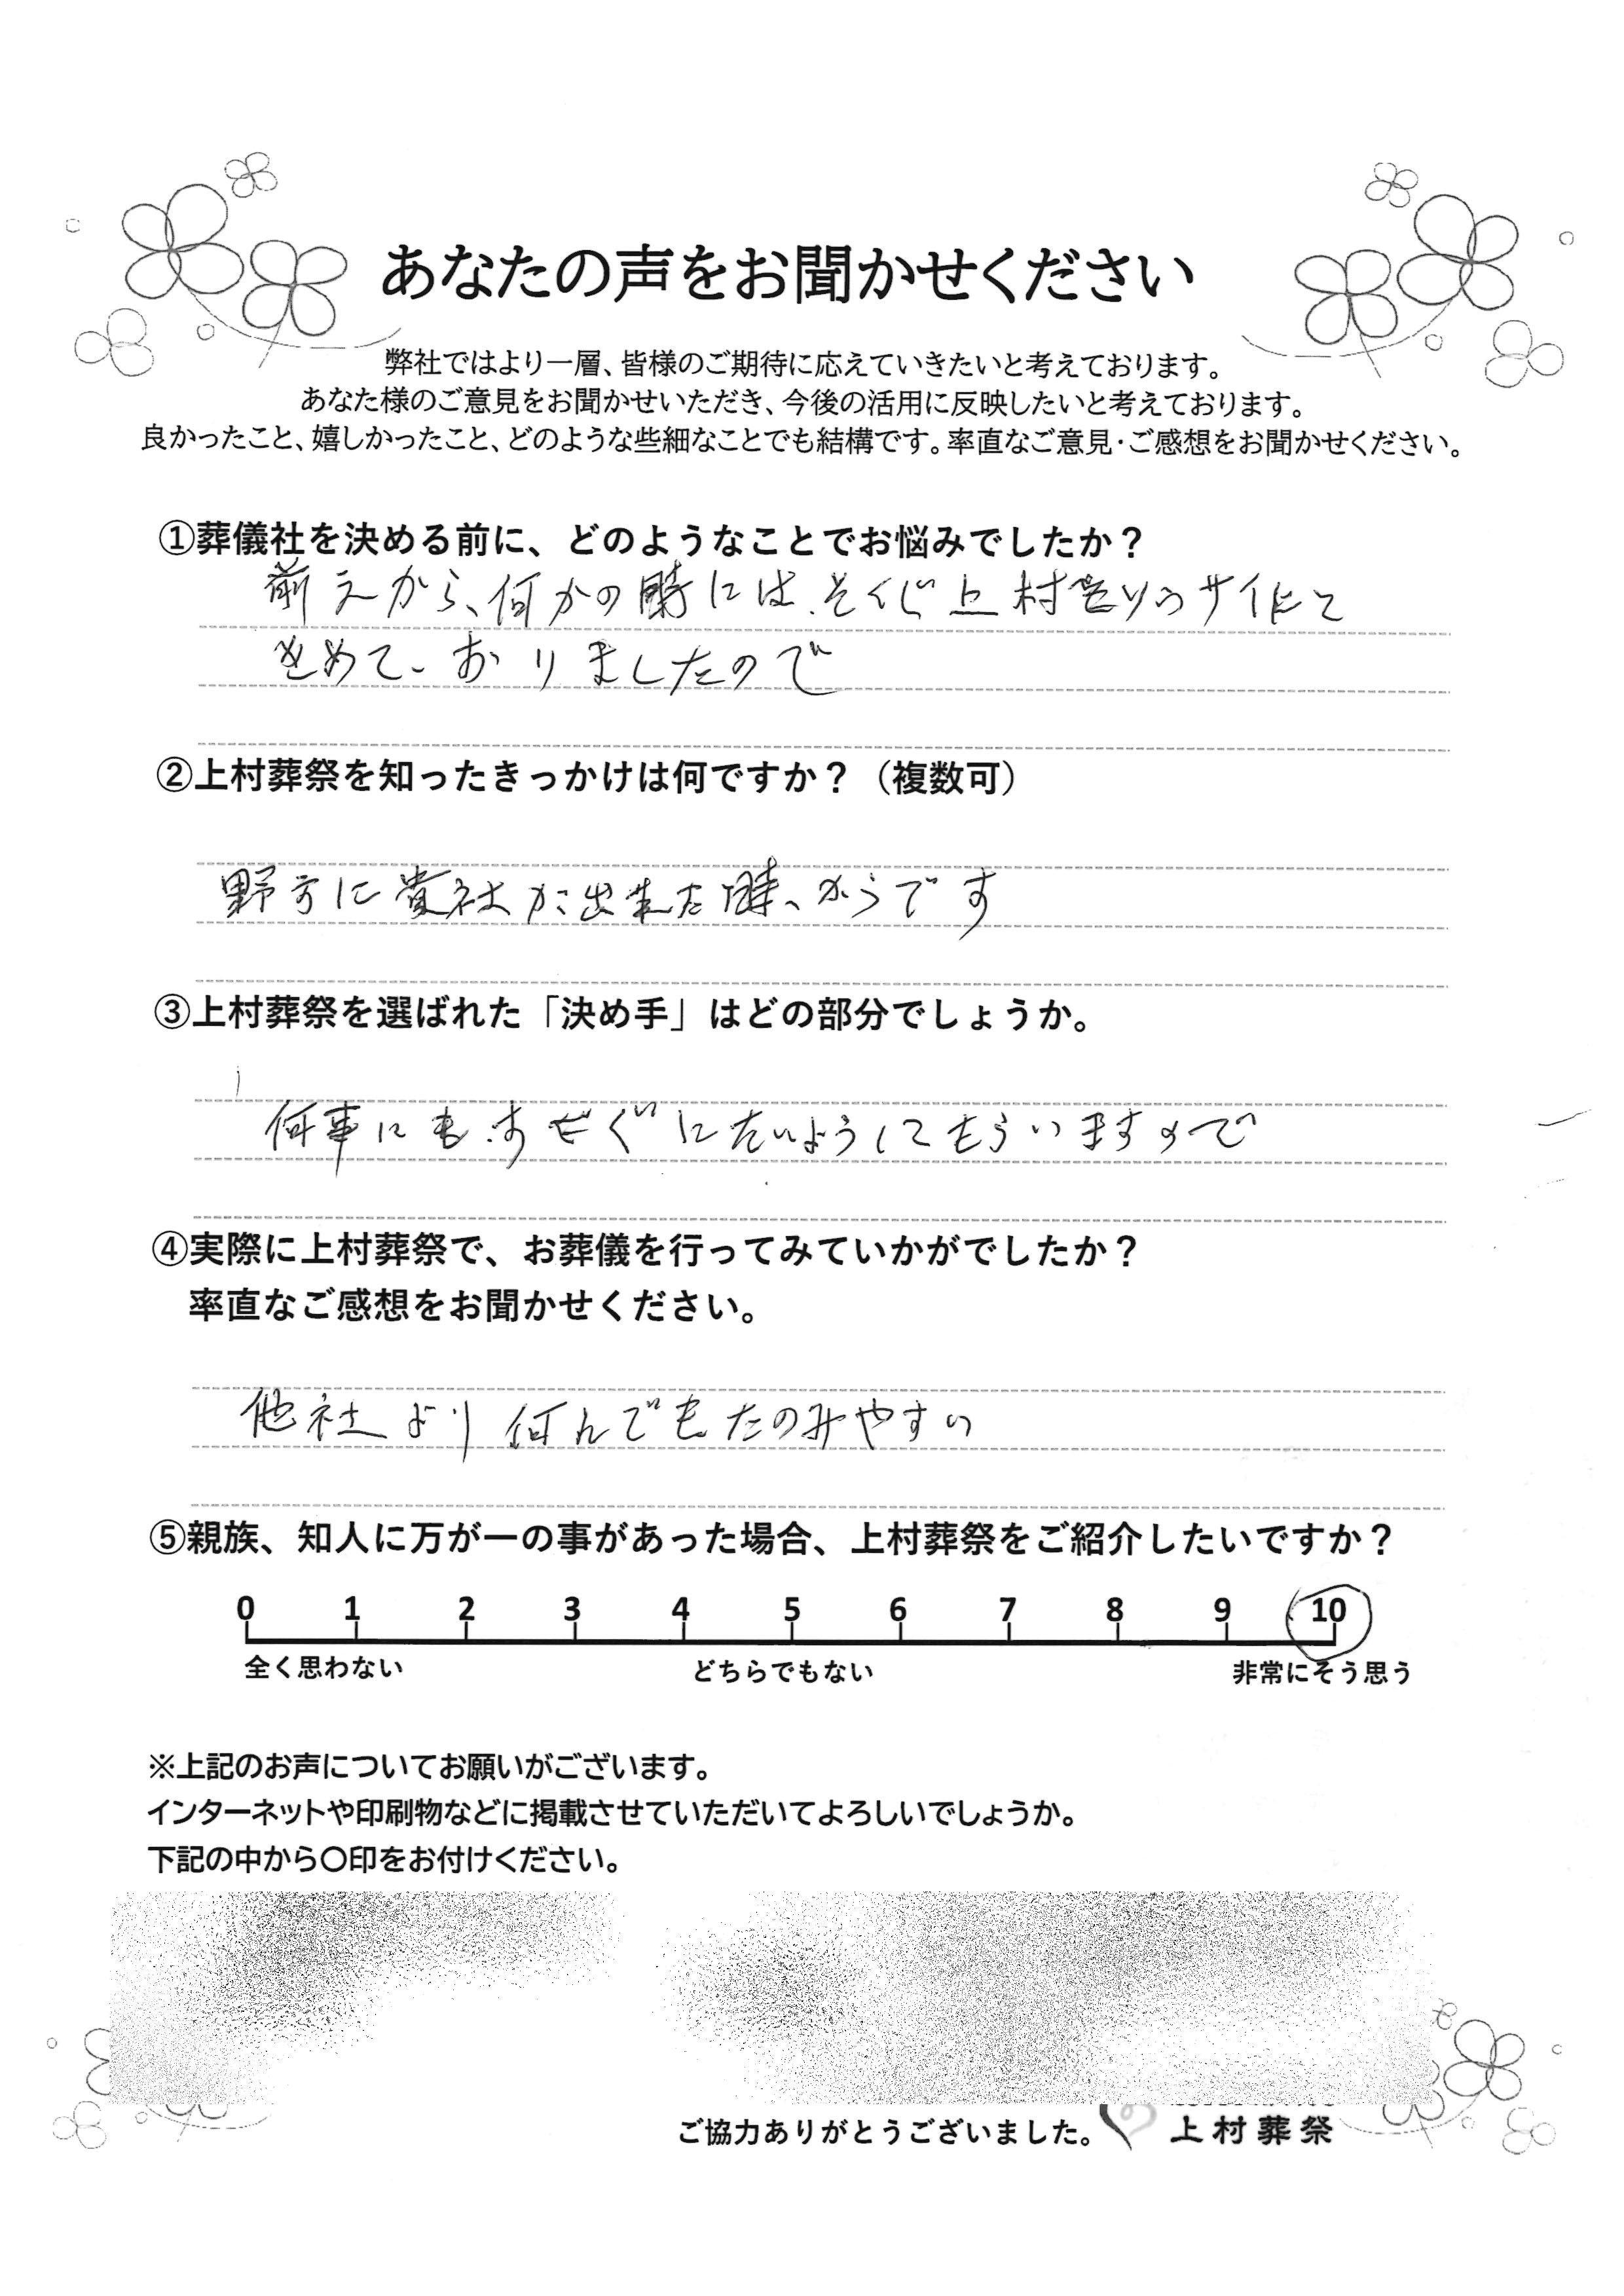 あなたの声をお聞かせください
弊社ではより一層、皆様のご期待に応えていきたいと考えております。
あなた様のご意見をお聞かせいただき、今後の活用に反映したいと考えております。
良かったこと、嬉しかったこと、どのような些細なことでも結構です。率直なご意見・ご感想をお聞かせください。
①葬儀社を決める前に、どのようなことでお悩みでしたか？
前えから、何かの時には、そくじ上村
きめて、おりましたので
②上村葬祭を知ったきっかけは何ですか？（複数可）
野方に貴社が出来た時、からです
③上村葬祭を選ばれた「決め手」はどの部分でしょうか。
何事にも、すぐにたいようしてもらいますので
④実際に上村葬祭で、お葬儀を行ってみていかがでしたか？
率直なご感想をお聞かせください。
他社より何んでもたのみやすい
⑤親族、知人に万が一の事があった場合、上村葬祭をご紹介したいですか？
0 1 2 3 4 5 6 7 8 9 10
全く思わない どちらでもない 非常にそう思う
※上記のお声についてお願いがございます。
インターネットや印刷物などに掲載させていただいてよろしいでしょうか。
下記の中から〇印をお付けください。
ご協力ありがとうございました。 上村葬祭